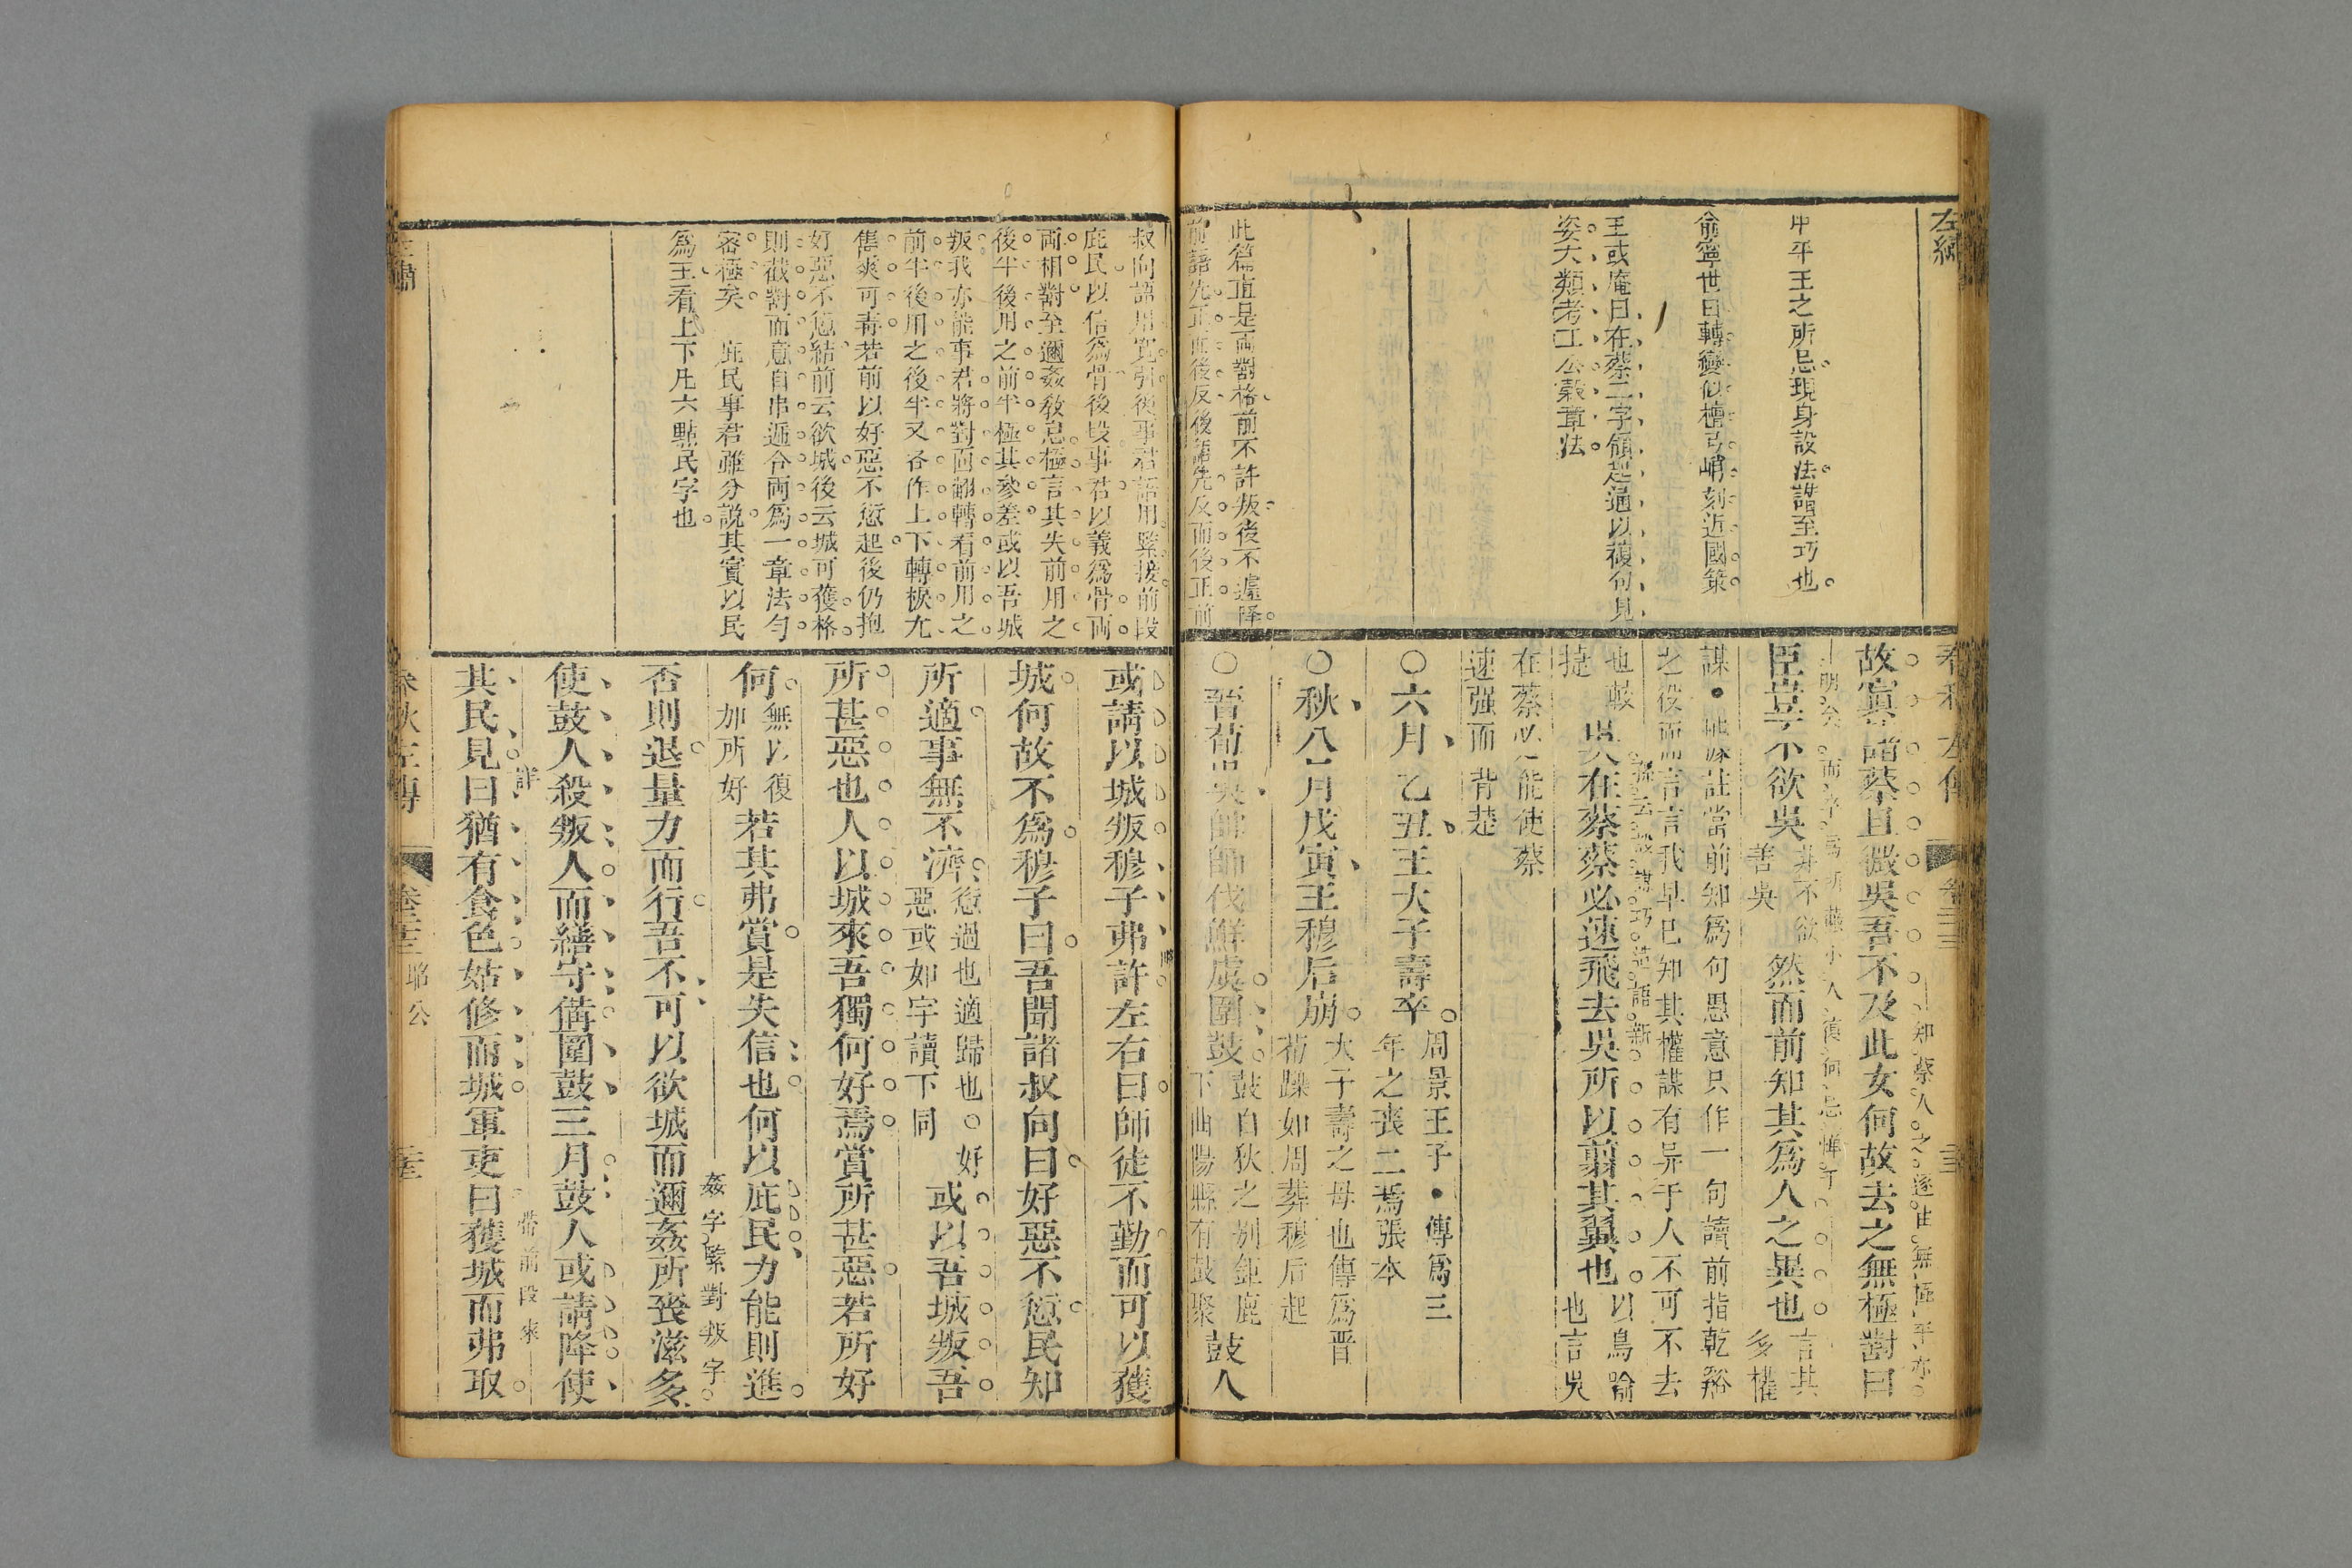 左繡
中平王之所忌現身設法譖至巧也
俞寧世曰轉變似檀弓峭刻近國策
王或庵曰在蔡二字領起逼以複句見
姿大類考工公穀章法
此篇直是兩對格前不許叛後不遽降
前語先正而後反後語先反而後正前
春秋左傳
卷二十三
故寘諸蔡且微吳吾不及此女何故去之無極對曰
臣豈不欲吳
非不欲
善吳
然而前知其為人之異也
言其
多權
謀
註當前知為句愚意只作一句讀前指乾谿
之役而言言我早已知其權謀有异于人不可不去
也蔽
捷
吳在蔡蔡必速飛去吳所以翦其翼也
以鳥喻
也言吳
在蔡必能使蔡
速强而背楚
○六月乙丑王大子壽卒
周景王子・傳為三
年之喪二焉張本
○秋八月戊寅王穆后崩
大子壽之母也傳為晉
荀躒如周葬穆后起
○晉荀吳帥師伐鮮虞圍鼓
鼓白狄之別鉅鹿
下曲陽縣有鼓聚
鼓人
叔向語用寬引後事君語用緊接前段
庇民以信為骨後段事君以義為骨兩
兩相對至邇姦敎怠極言其失前用之
後半後用之前半極其參差或以吾城
叛我亦能事君將對面翻轉看前用之
前半後用之後半又各作上下轉捩尤
雋爽可壽若前以好惡不愆起後仍抱
好惡不愆結前云欲城後云城可獲格
則截對而意自串遞合兩為一章法勻
密極矣 庇民事君雖分說其實以民
為主看上下凡六點民字也
或請以城叛穆子弗許左右曰師徒不勤而可以獲
城何故不為穆子曰吾聞諸叔向曰好惡不愆民知
所適事無不濟
愆過也適歸也○好
惡或如字讀下同
或以吾城叛吾
所甚惡也人以城來吾獨何好焉賞所甚惡若所好
何
無以復
加所好
若其弗賞是失信也何以庇民力能則進
否則退量力而行吾不可以欲城而邇姦所喪滋多
姦字緊對叛字
使鼓人殺叛人而繕守備圍鼓三月鼓人或請降使
其民見曰猶有食色姑修而城軍吏曰獲城而弗取
詳
帶前段來
春秋左傳
卷二十三
昭公